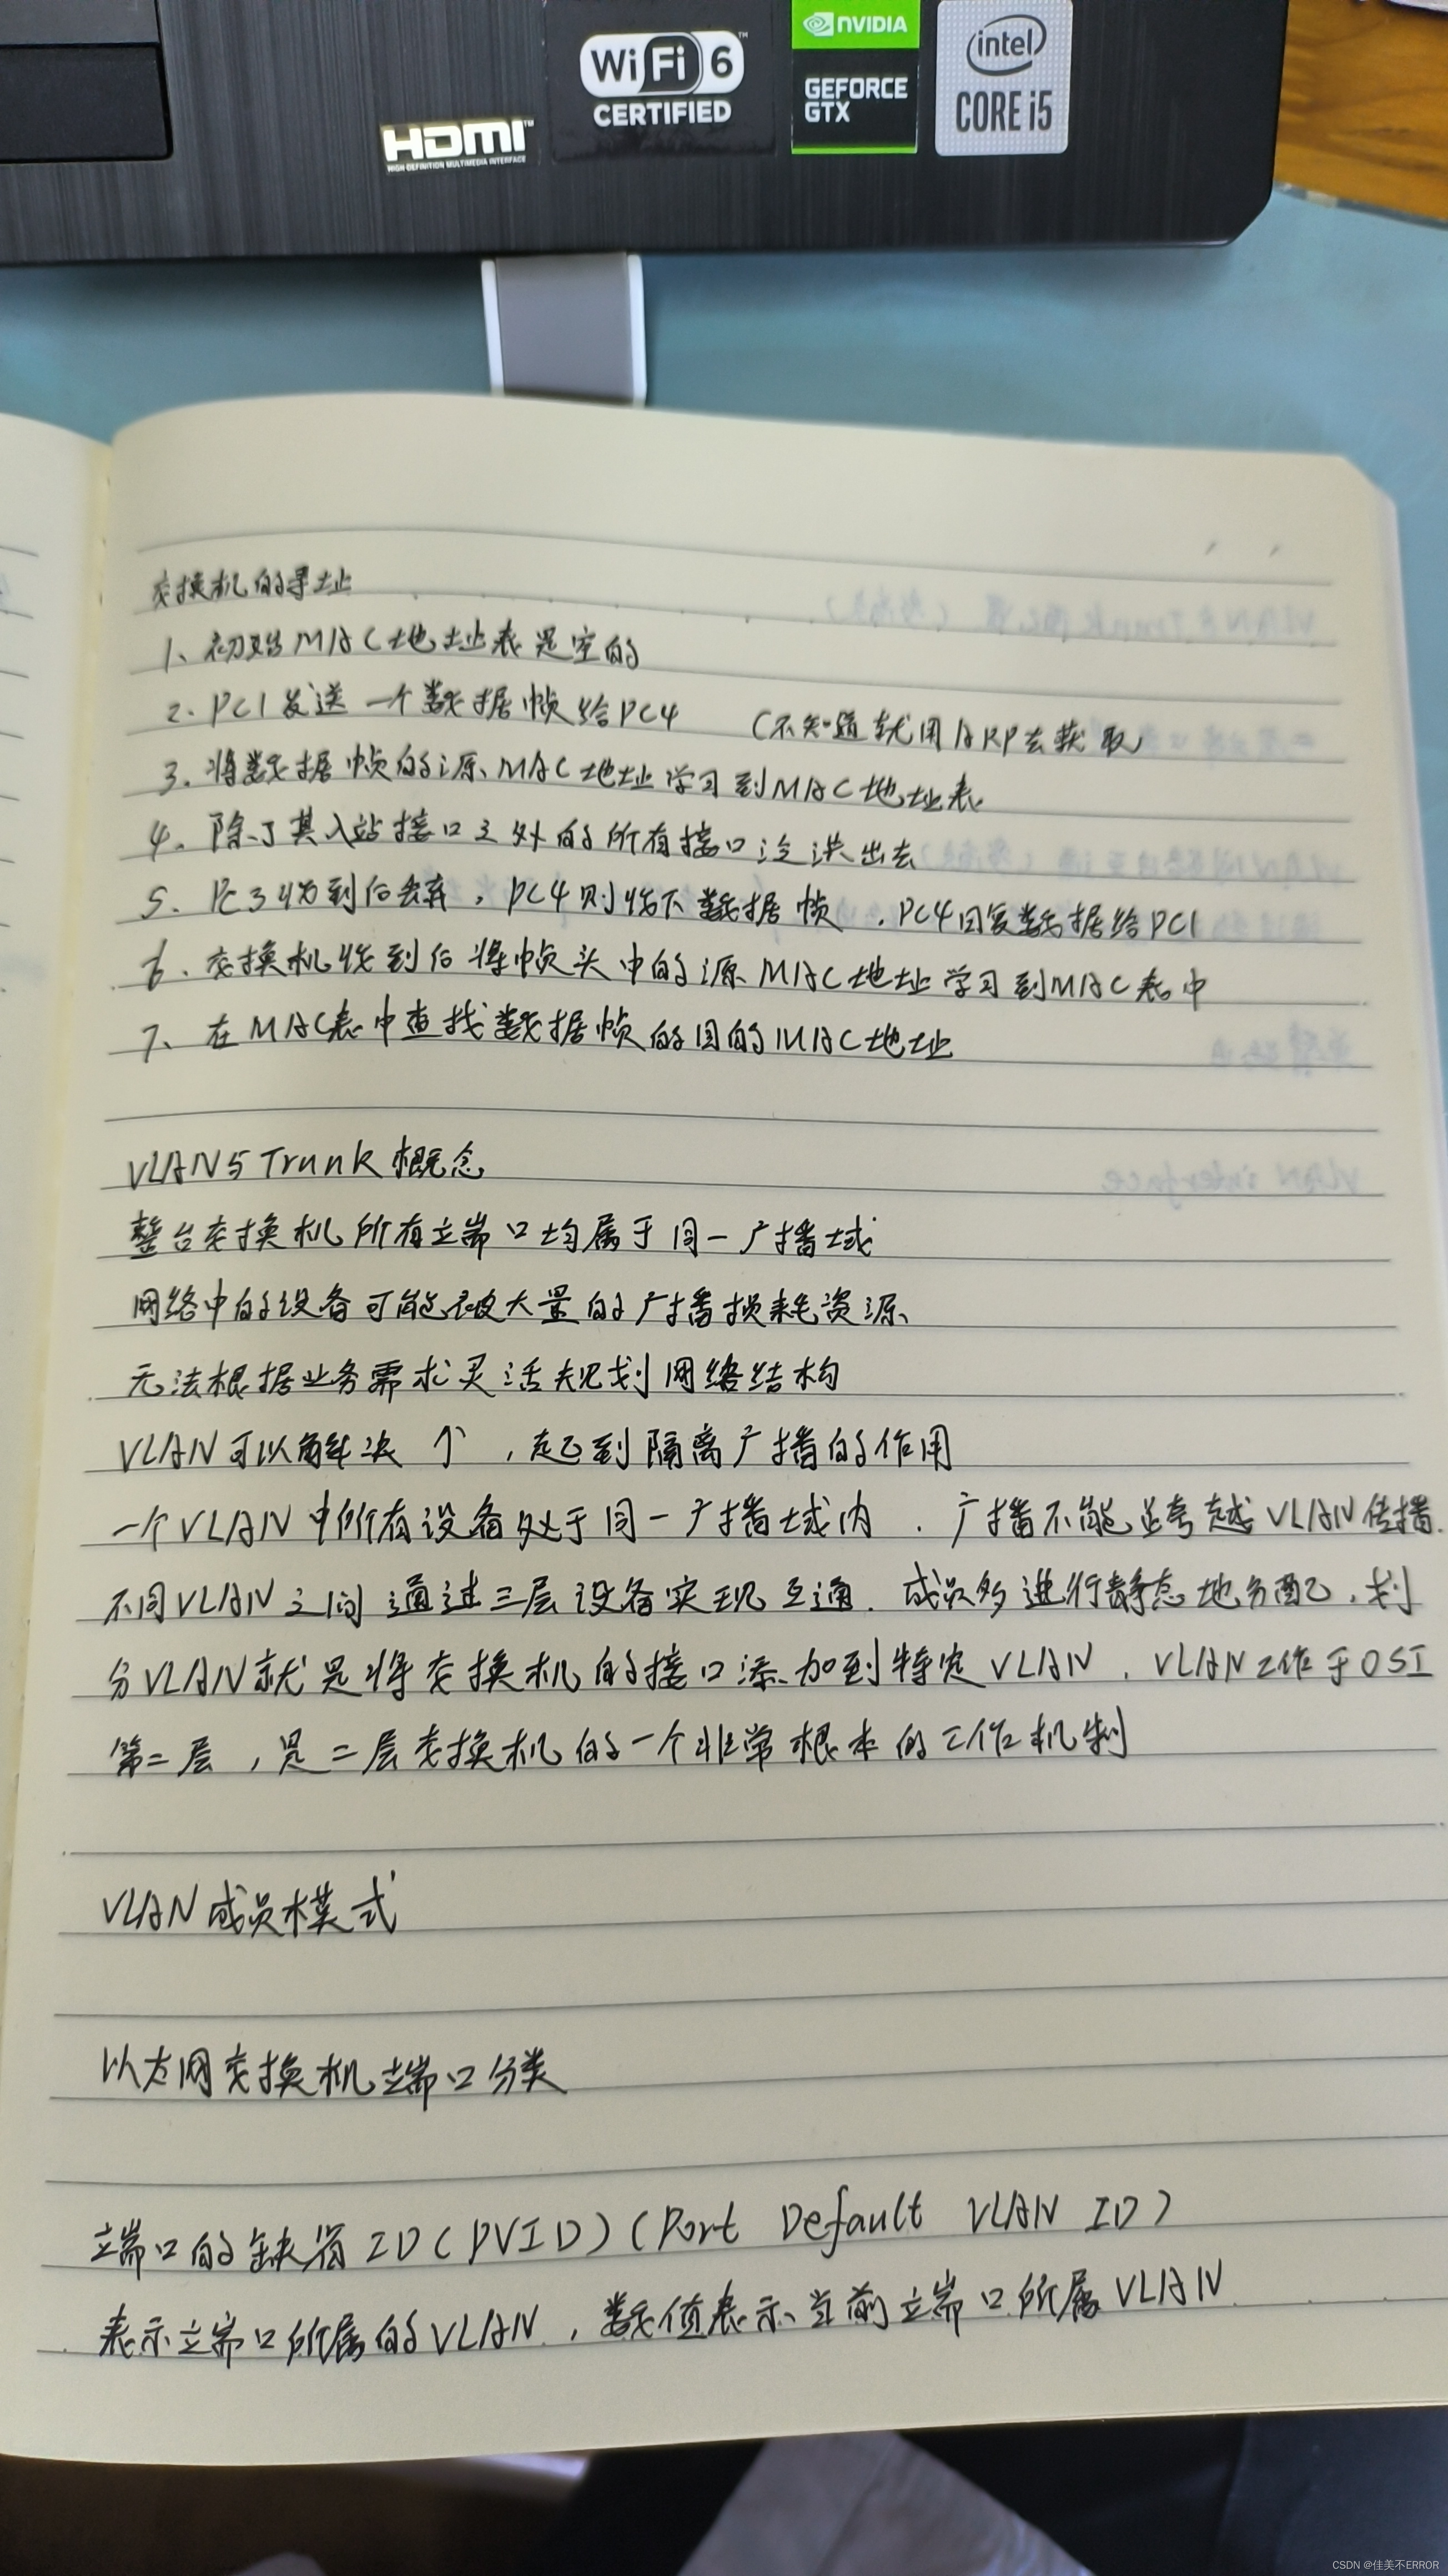 WiFi 6™
CERTIFIED
HDMI™
HIGH-DEFINITION MULTIMEDIA INTERFACE
NVIDIA
GEFORCE
GTX
intel
CORE i5
交换机的寻址
1、初始MAC地址表是空的
2. PC1发送一个数据帧给PC4 （不知道就用ARP去获取）
3. 将数据帧的源MAC地址学习到MAC地址表
4. 除了其入站接口之外的所有接口泛洪出去
5. PC3收到后丢弃，PC4则收下数据帧，PC4回复数据给PC1
6、交换机收到后将帧头中的源MAC地址学习到MAC表中
7、在MAC表中查找数据帧的目的MAC地址
VLAN与Trunk概念
整台交换机所有端口均属于同一广播域
网络中的设备可能被大量的广播损耗资源
无法根据业务需求灵活规划网络结构
VLAN可以解决 ↑，起到隔离广播的作用
一个VLAN中所有设备处于同一广播域内．广播不能跨越VLAN传播．
不同VLAN之间通过三层设备实现互通．成员多进行静态地分配，划
分VLAN就是将交换机的接口添加到特定VLAN，VLAN工作于OSI
第二层，是二层交换机的一个非常根本的工作机制
VLAN成员模式
以太网交换机端口分类
端口的缺省ID（PVID）（Port Default VLAN ID）
表示端口所属的VLAN，数值表示当前端口所属VLAN
CSDN @佳美不ERROR